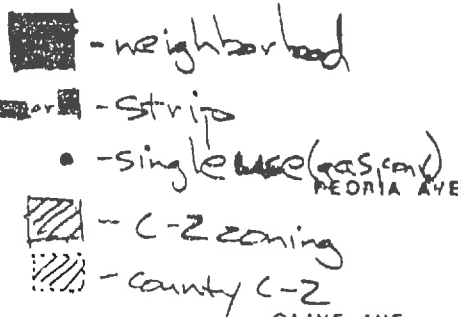 - neighborhood
or - strip
- single use (gas, conv)
PEORIA AVE
- C-2 zoning
- county C-2
OLIVE AVE